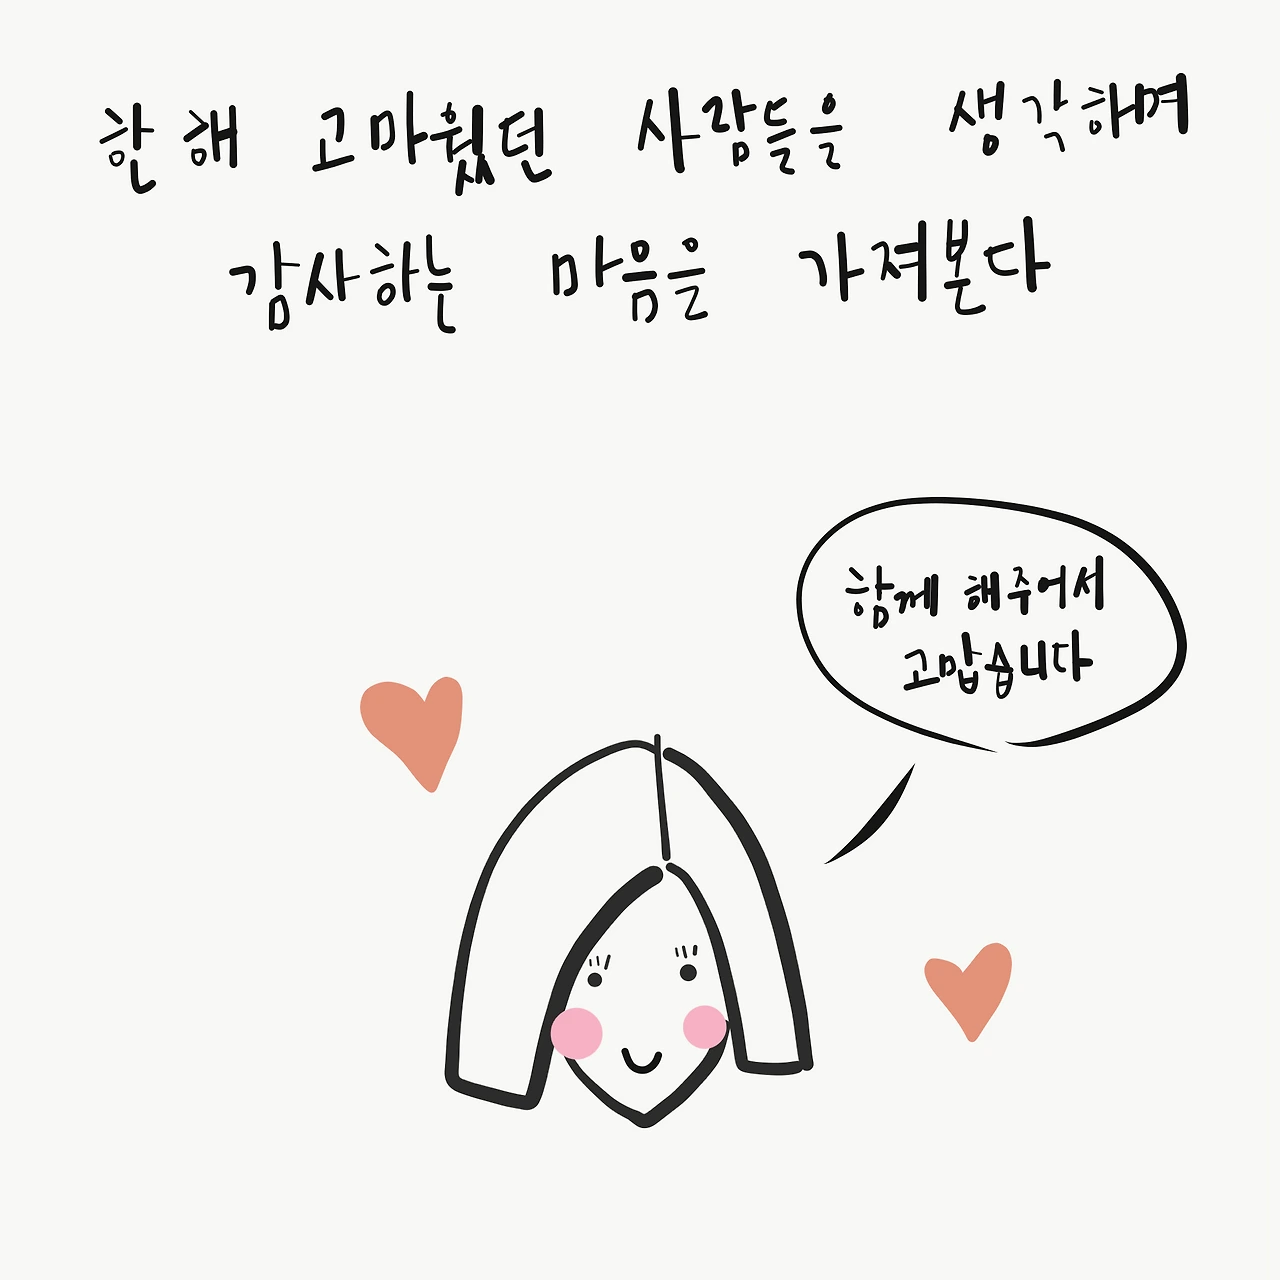 한 해 고마웠던 사람들을 생각하며
감사하는 마음을 가져본다
함께 해주어서
고맙습니다